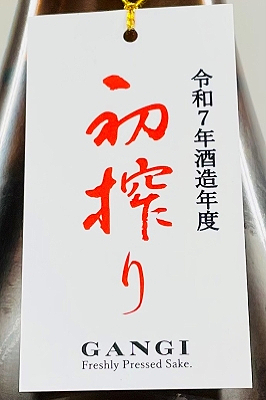 令和7年酒造年度
初搾り
GANGI
Freshly Pressed Sake.